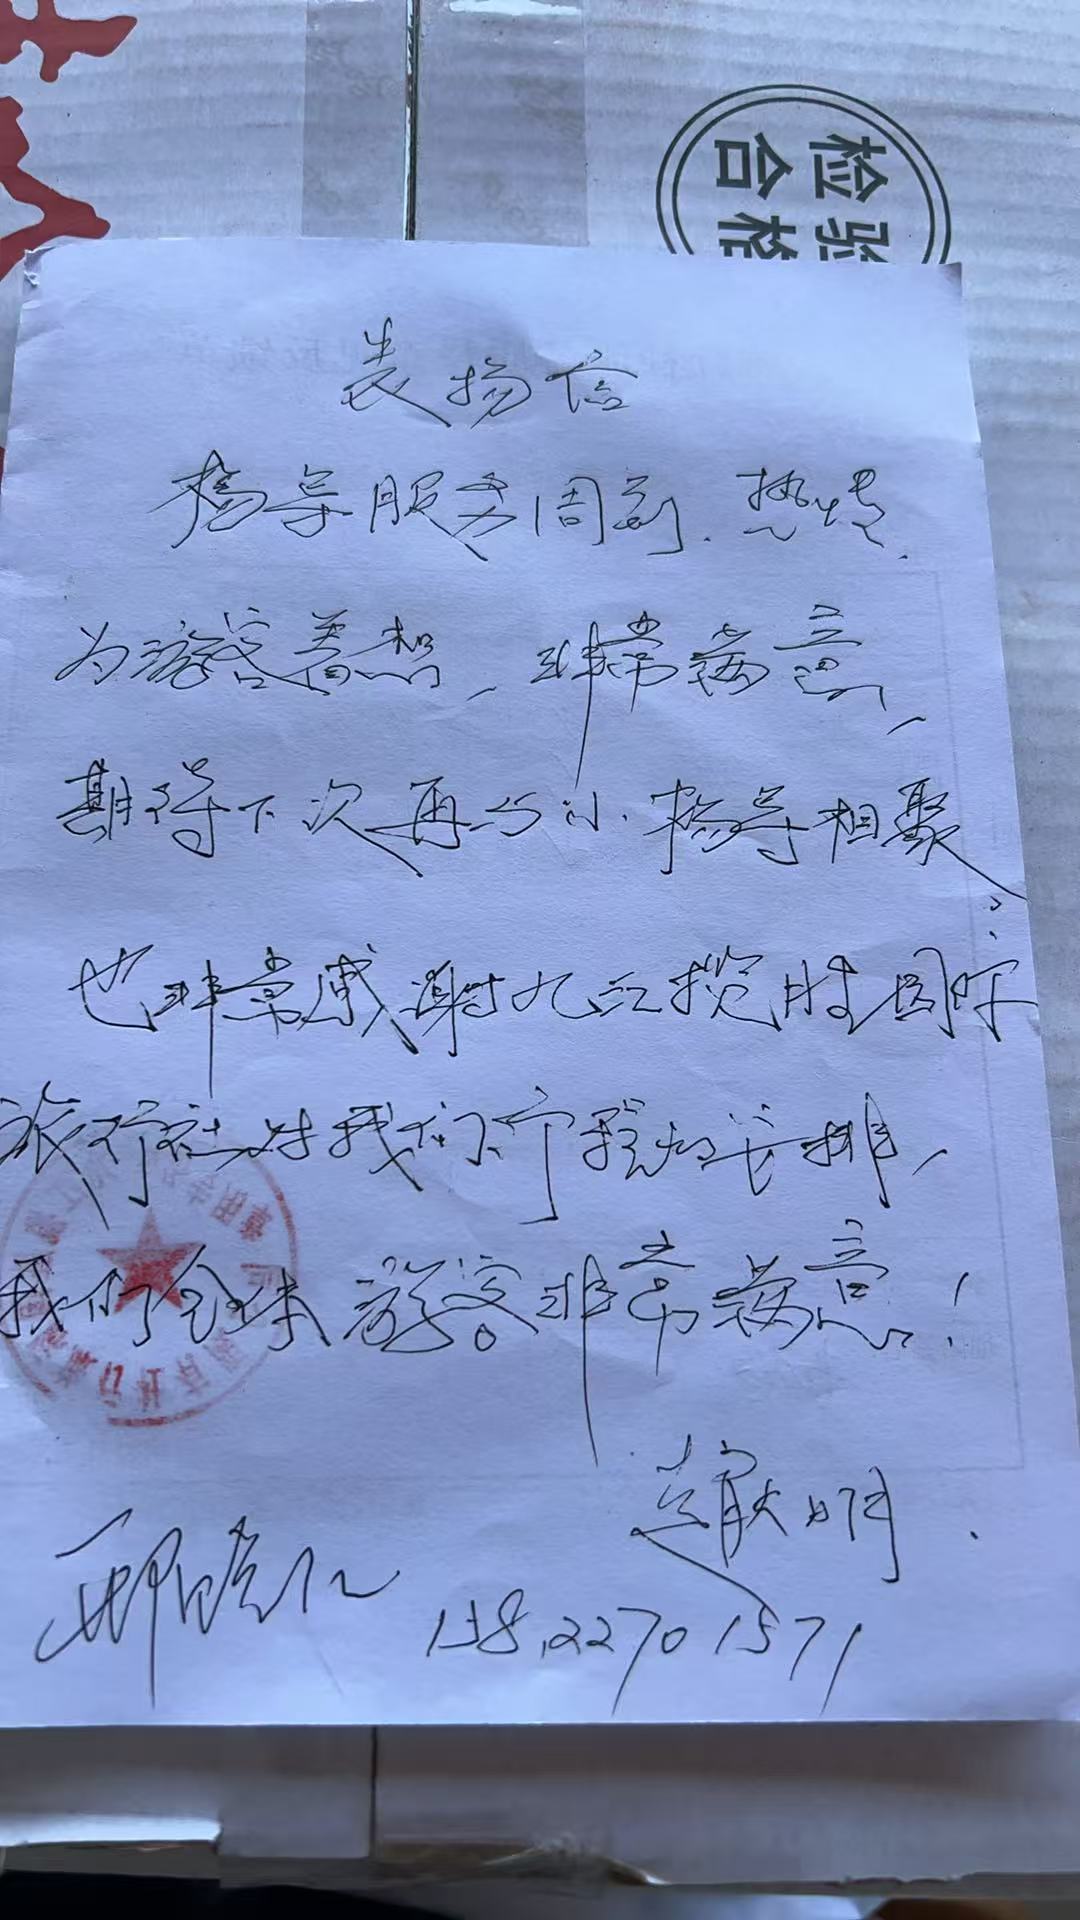 检验
合格
表扬信
杨导服务周到、热情、
为游客着想，非常满意，
期待下次再与小杨导相聚，
也非常感谢九江揽胜国际
旅行社对我们行程的安排，
我们全体游客非常满意！
明
138.22701571